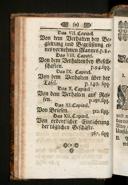 Das VII. Capitul.
Von dem Verhalten bey Be-
gleitung und Begrüssung ei-
nes vornehmen Mannes. p.
Das VIII. Capitul.
Von dem Verhalten bey Gesell-
schafften. p.94.sqq.
Das IX. Capitul.
Von dem Verhalten über der
Tafel. p. 140. sqq.
Das X. Capitul.
Von dem Verhalten auf Rei-
sen. sqq.
Das XI. Capitul.
Von Briefen. sqq.
Das XII. Capitul.
Von ordentlicher Einrichtung
der täglichen Geschäfte.
sqq.